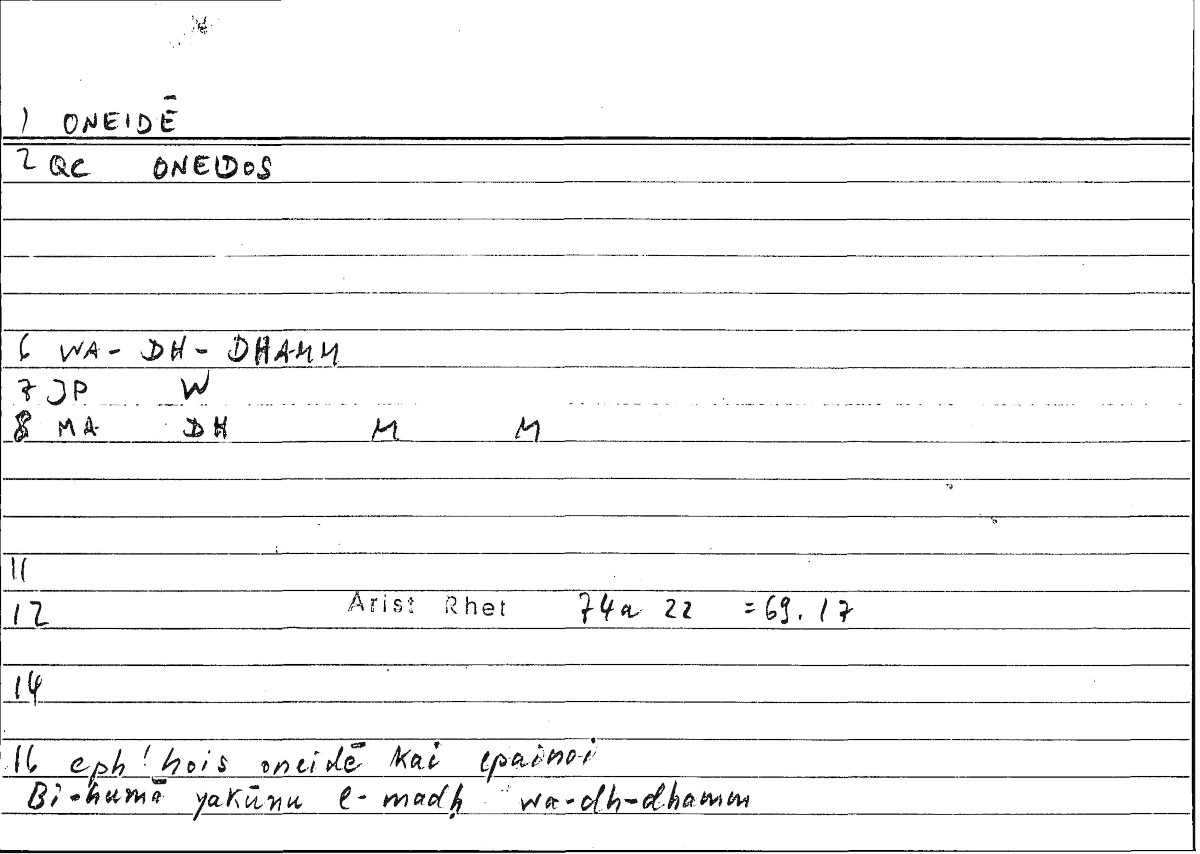 1 ONEIDĒ
2 QC ONEIDOS
6 WA- DH- DHAMM
7 JP W
8 MA DH M M
11
12 Arist Rhet 74a 22 =69.17
14
16 eph' hois oneidē kai epainoi
Bi-humā yakūnu l-madḥ wa-dh-dhamm